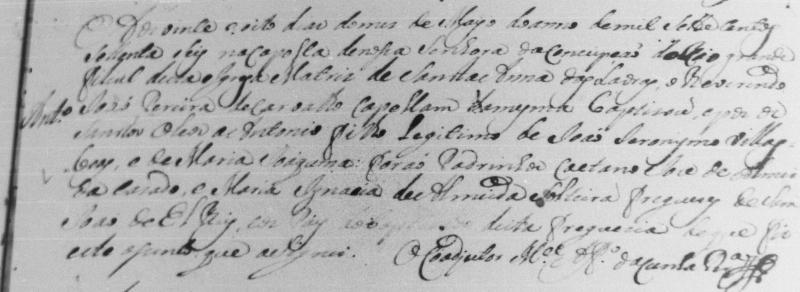 Aos vinte e oito dias do mes de Mayo do anno de mil sette centos
sessenta e seis na capella de nossa Senhora da Conceiçaõ do Rio grande
filial desta Igreja Matriz de Santa Anna das Lavras, o Reverendo
Joaõ Pereira de Carvalho Capellam da mesma baptizou, e pos os
Anto.
Santos Oleos a Antonio filho Legitimo de Joaõ Jeronymo Villas
boas, e de Maria foraõ Padrinhos Caetano Jose de Almei
da cazado, e Maria Ignacia de Almeida solteira freguezes de Sam
Joaõ de El Rey, e os Pays do baptizado desta freguezia de que fiz
este asento que asignei. O Coadjutor Mel. Affo. da Cunha Pra